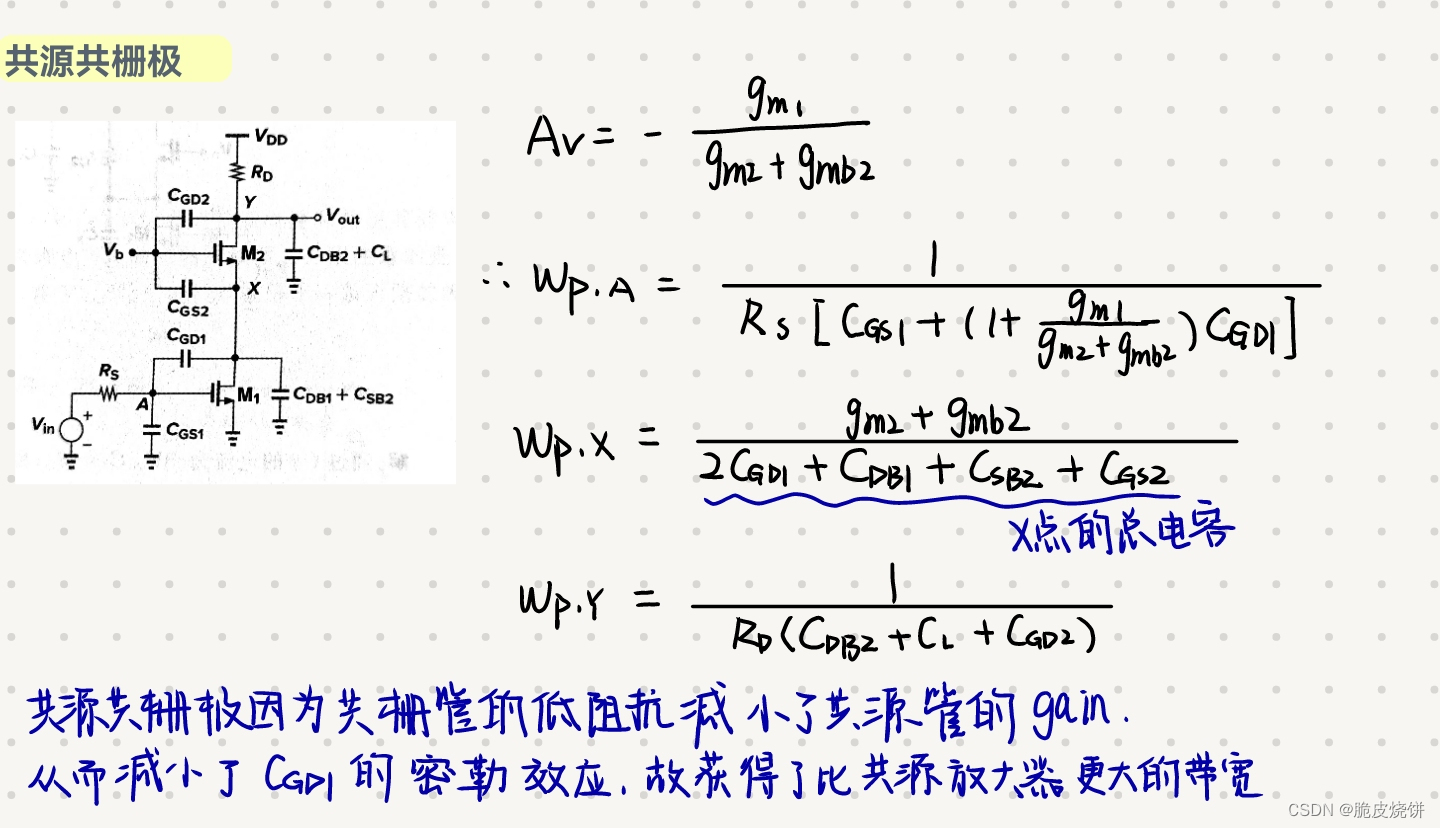 共源共栅极
VDD
RD
CGD2
Y
Vout
Vb
M2
CDB2 + CL
X
CGS2
CGD1
RS
A
M1
CDB1 + CSB2
Vin
+
−
CGS1
Av = - gm1 / (gm2 + gmb2)
∴ Wp.A = 1 / RS [CGS1 + (1 + gm1 / (gm2 + gmb2)) CGD1]
Wp.X = (gm2 + gmb2) / (2CGD1 + CDB1 + CSB2 + CGS2)
X点的总电容
Wp.Y = 1 / RD(CDB2 + CL + CGD2)
共源共栅极因为共栅管的低阻抗减小了共源管的gain.
从而减小了CGD1的密勒效应,故获得了比共源放大器更大的带宽
CSDN @脆皮烧饼